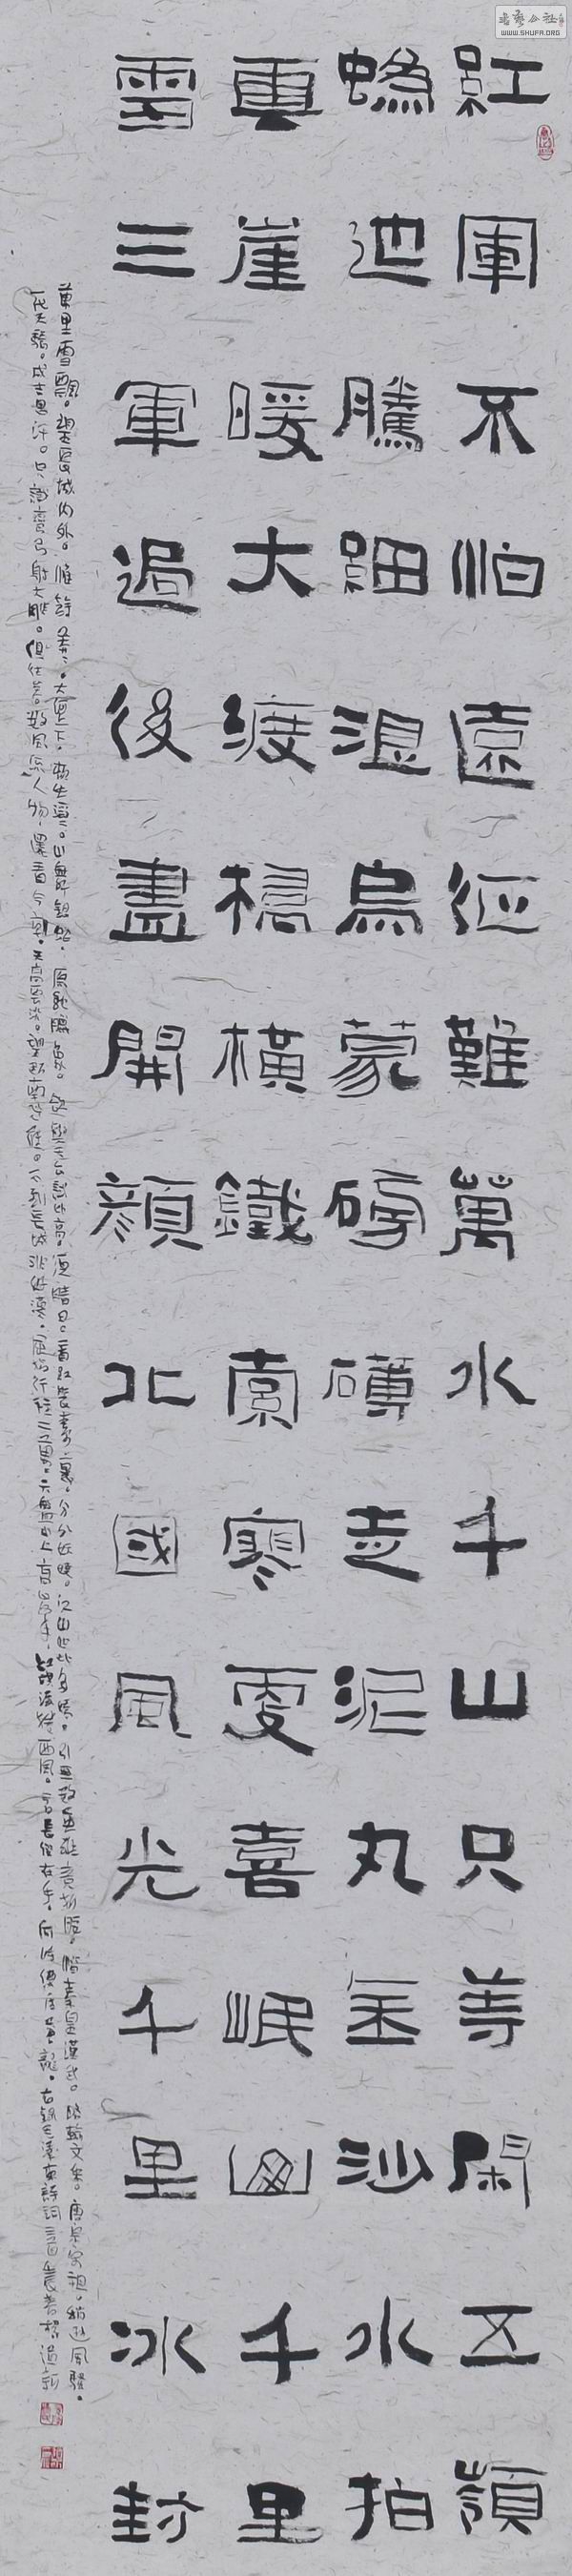 紅軍不怕遠征難萬水千山只等閑五嶺
蟡迆騰細浪烏蒙磅礴走泥丸金沙水拍
雲崖暖大渡橋橫鐵索寒更喜岷山千里
雪三軍過後盡開顏北國風光千里冰封
萬里雪飄。望長城內外。惟餘莽莽。大河上下。頓失滔滔。山舞銀蛇。原馳臘象。欲與天公試比高。須晴日。看紅裝素裹。分外妖嬈。江山如此多嬌。引無數英雄競折腰。惜秦皇漢武。略輸文采。唐宗宋祖。稍遜風騷。
一代天驕。成吉思汗。只識彎弓射大雕。俱往矣。數風流人物。還看今朝。天高雲淡。望斷南飛雁。不到長城非好漢。屈指行程二萬。六盤山上高峰。紅旗漫卷西風。今日長纓在手。何時縛住蒼龍。右錄毛澤東詩詞三首
書藝公社
WWW.SHUFA.ORG